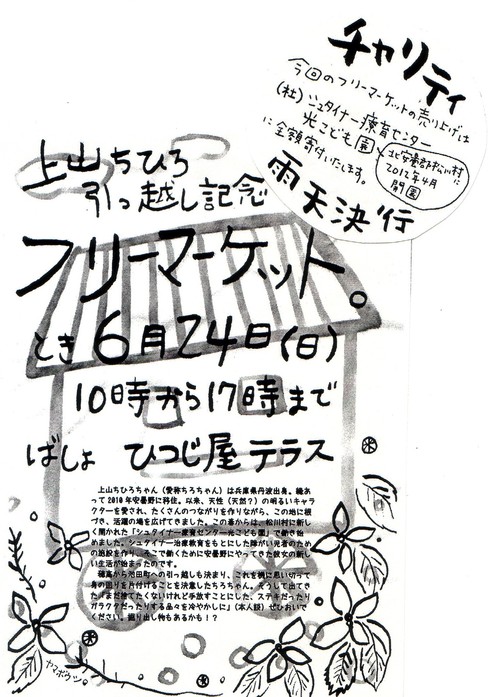 チャリティ
今回のフリーマーケットの売り上げは
(社)シュタイナー療育センター
光こども園
に全額寄付いたします。
北安曇郡松川村に
2012年4月
開園
雨天決行
上山ちひろ
引っ越し記念
フリーマーケット。
とき 6月24日(日)
10時から17時まで
ばしょ ひつじ屋テラス
上山ちひろちゃん(愛称ちろちゃん)は兵庫県丹波出身。縁あ
って2010年安曇野に移住。以来、天性(天然?)の明るいキャラ
クターを愛され、たくさんのつながりを作りながら、この地に根
づき、活躍の場を広げてきました。この春からは、松川村に新し
く開かれた「シュタイナー療育センター光こども園」で働き始
めました。シュタイナー治療教育をもとにした障がい児者のため
の施設を作り、そこで働くために安曇野にやってきた彼女の新し
い生活が始まったのです。
穂高から池田町への引っ越しも決まり、これを機に思い切って
身の回りを片付けることを決意したちろちゃん。そうして出てき
た『まだ捨てたくないけれど手放すことにした、ステキだったり
ガラクタだったりする品々を冷やかしに』(本人談)ぜひおいで
ください。掘り出し物もあるかも!?
ヤマボウシ。